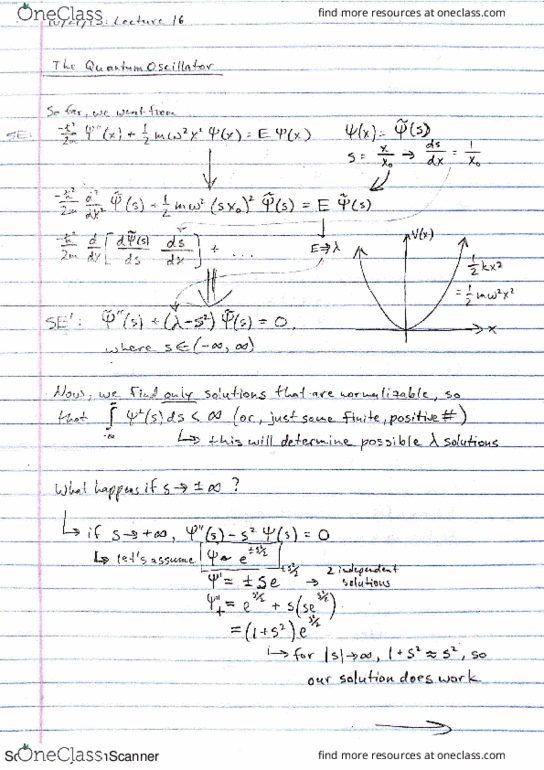 OneClass
find more resources at oneclass.com
Lecture 16
The Quantum Oscillator
So far, we went from
SE: -ħ²/2m ψ''(x) + 1/2 mω²x² ψ(x) = E ψ(x)
ψ(x) = ψ̃(s)
s = x/x₀ → ds/dx = 1/x₀
-ħ²/2m d²/dx² ψ̃(s) + 1/2 mω² (sx₀)² ψ̃(s) = E ψ̃(s)
-ħ²/2m d/dx [dψ̃(s)/ds ds/dx] + ...
E⇒λ
V(x)
1/2 kx²
= 1/2 mω²x²
x
SE': ψ̃''(s) + (λ-s²) ψ̃(s) = 0,
where s ∈ (-∞, ∞)
Now, we find only solutions that are normalizable, so
that ∫ ψ²(s) ds < ∞ (or, just some finite, positive #)
↳ this will determine possible λ solutions
What happens if s → ±∞ ?
↳ if s → +∞, ψ''(s) - s² ψ(s) = 0
↳ let's assume ψ ~ e^(±s²/2)
ψ' = ± s e^(±s²/2) → 2 independent solutions
ψ''₊ = e^(s²/2) + s(se^(s²/2))
= (1+s²) e^(s²/2)
↳ for |s| → ∞, 1+s² ≈ s², so
our solution does work
OneClass
Scanner
find more resources at oneclass.com